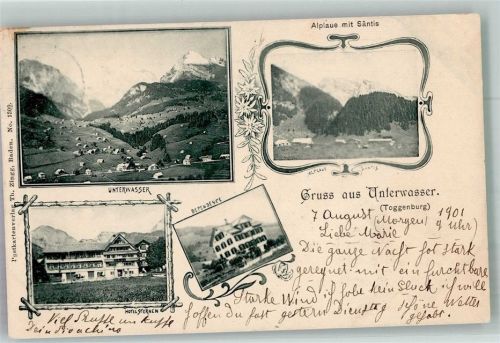 Alplaue mit Säntis
Postkartenverlag Th. Zingg, Baden. No. 1309.
UNTERWASSER
ALPLAUE SÄNTIS
DEPENDENCE
HOTEL STERNEN
Gruss aus Unterwasser.
(Toggenburg)
7 August 1901
(Morgen 9 Uhr)
Liebe Marie
Die ganze Nacht hat stark
geregnet mit ein furchtbare
Starke Wind ich habe kein Glück ich will
hoffen du hast gestern Dienstag schöne Wetter
gehabt.
Viel Grüsse und Küsse
Dein